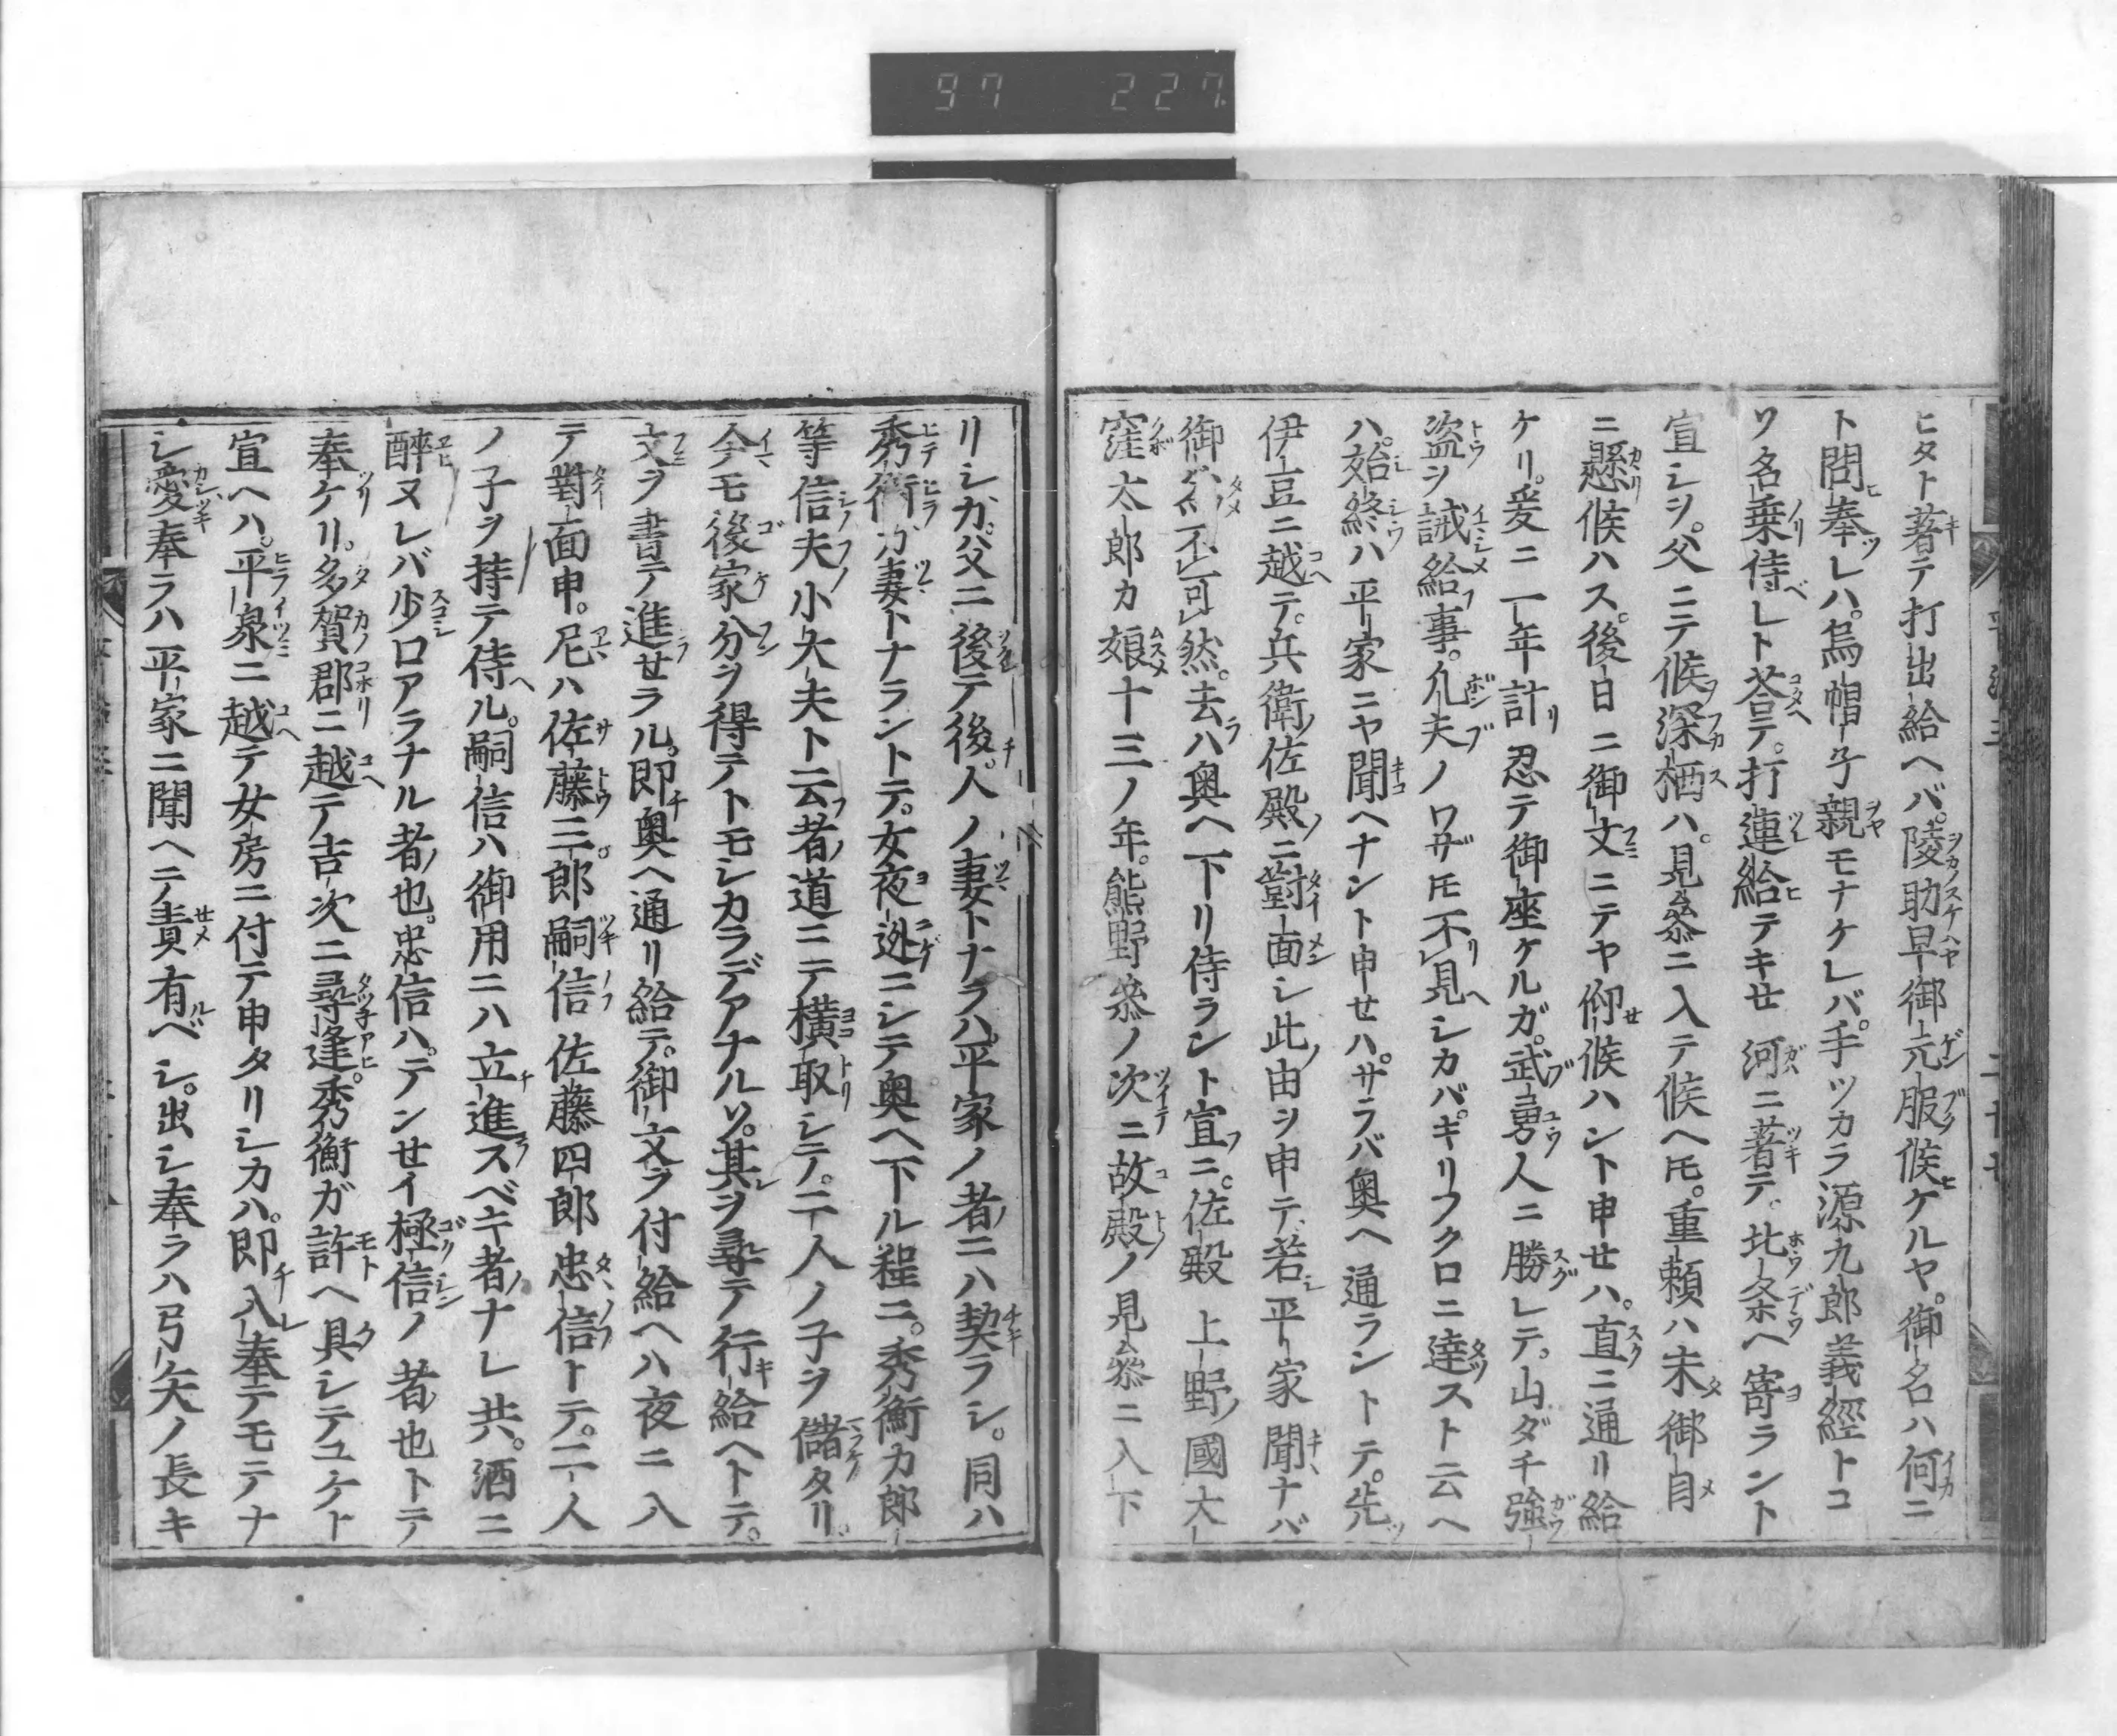 97 227
ヒタト著テ打出給ヘバ。陵助早御元服候ケルヤ。御名ハ何ニ
ト問奉レハ。烏帽子親モナケレバ。手ツカラ源九郎義經トコ
ソ名乗侍レト荅テ。打連給テキせ河ニ著テ。北条ヘ寄ラント
宣シヲ。父ニテ候深栖ハ。見叅ニ入テ候ヘ𪜈。重頼ハ未御目
ニ懸候ハス。後日ニ御文ニテヤ仰候ハント申せハ。直ニ通リ給
ケリ。爰ニ一年計忍テ御座ケルガ。武勇人ニ勝レテ。山ダチ強
盗ヲ誡給事。凢夫ノワザ𪜈不見シカバ。ギリフクロニ達スト云ヘ
ハ。始終ハ平家ニヤ聞ヘナント申せハ。サラバ奥ヘ通ラントテ。先
伊豆ニ越テ。兵衛佐殿ニ對面シ此由ヲ申テ。若平家聞ナバ
御爲不可然。去ハ奥ヘ下リ侍ラント宣ニ。佐殿上野國大
窪太郎カ娘十三ノ年。熊野叅ノ次ニ故殿ノ見叅ニ入下
リシガ。父ニ後テ後。人ノ妻トナラハ。平家ノ者ニハ契ラシ。同ハ
秀衡ガ妻トナラントテ。女夜迯ニシテ奥ヘ下ル程ニ。秀衡カ郎
等信夫小大夫ト云者道ニテ横取シテ。二人ノ子ヲ儲タリ。
今モ後家分ヲ得テトモシカラデアナルソ。其ヲ尋テ行給ヘトテ。
文ヲ書テ進せラル。即奥ヘ通リ給テ。御文ヲ付給ヘハ夜ニ入
テ對面申。尼ハ佐藤三郎嗣信佐藤四郎忠信トテ。二人
ノ子ヲ持テ侍ル。嗣信ハ御用ニハ立進スベキ者ナレ共。酒ニ
醉ヌレバ少口アラナル者也。忠信ハ。テンせイ極信ノ者也トテ
奉ケリ。多賀郡ニ越テ吉次ニ尋逢。秀衡ガ許ヘ具シテユケト
宣ヘハ。平泉ニ越テ女房ニ付テ申タリシカハ。即入奉テモテナ
シ愛奉ラハ平家ニ聞ヘテ責有ベシ。出シ奉ラハ弓矢ノ長キ